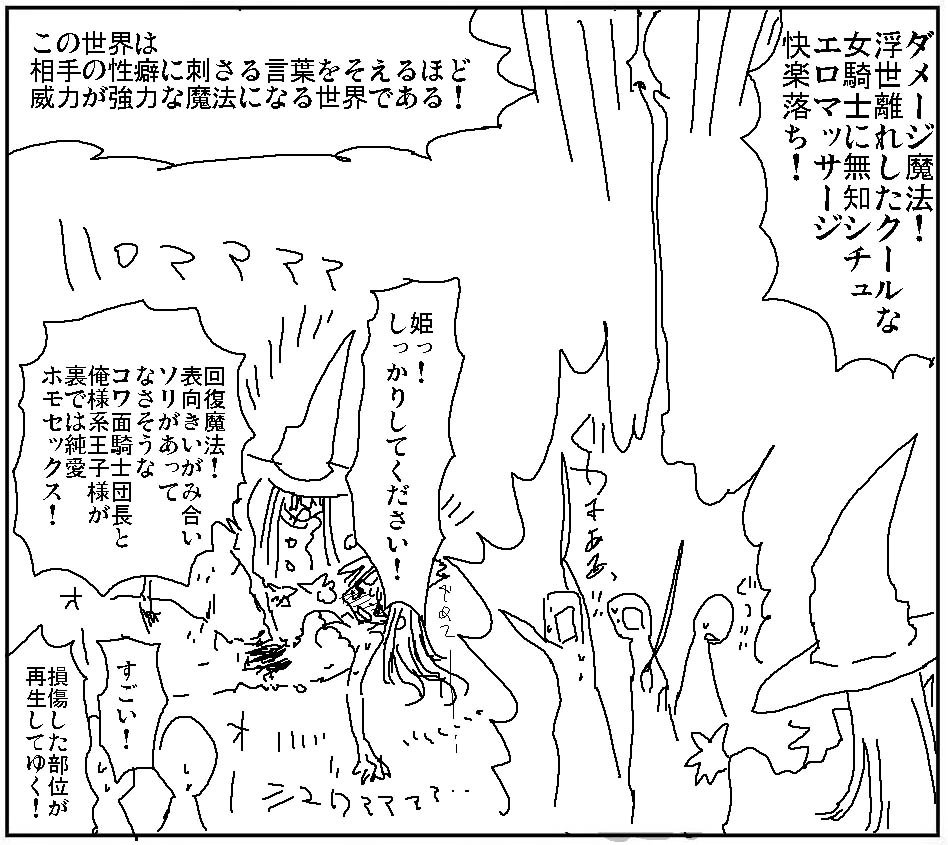 ダメージ魔法!
浮世離れしたクールな
女騎士に無知シチュ
エロマッサージ
快楽落ち!
この世界は
相手の性癖に刺さる言葉をそえるほど
威力が強力な魔法になる世界である!
姫っ!
しっかりしてください!
回復魔法!
表向きいがみ合い
ソリがあって
なさそうな
コワ面騎士団長と
俺様系王子様が
裏では純愛
ホモセックス!
すごい!
損傷した部位が
再生してゆく!